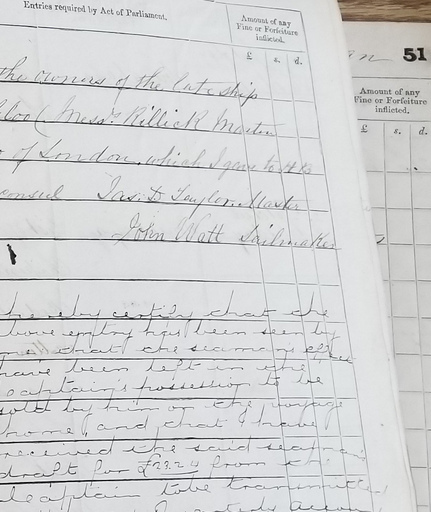 Entries required by Act of Parliament.
Amount of any
Fine or Forfeiture
inflicted.
£ s. d.
the owners of the late ship
Messrs Killick Martin
of London, which I gave to H B
consul Jas. D Taylor Master
John Watt Sailmaker
hereby certify that the
above entry has been seen by
me that the seaman's effects
have been left in the
captain's possession to be
sold by him on the voyage
home, and that I have
received the said seaman's
draft for £22.2.4 from the
Captain to be transmitted
51
Amount of any
Fine or Forfeiture
inflicted.
£ s. d.